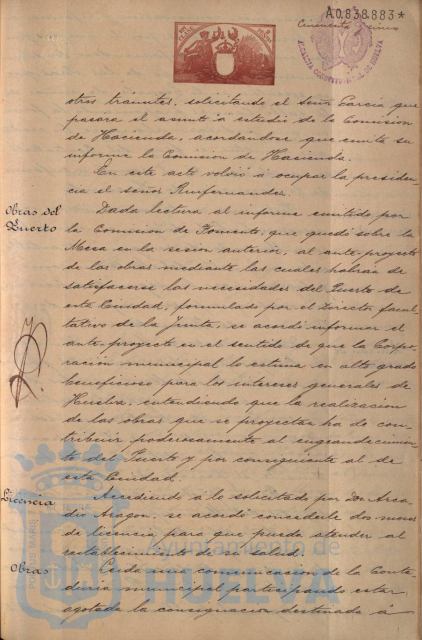 A.0.838.883*
ALCALDIA CONSTITUCIONAL DE HUELVA
otros trámites, solicitando el Señor García que
pasara el asunto á estudio de la Comision
de Hacienda, acordándose que emita su
informe la Comision de Hacienda.
En este acto volvió á ocupar la presiden-
cia el señor
Obras del
Puerto
Dada lectura al informe emitido por
la Comision de Fomento, que quedó sobre la
Mesa en la sesion anterior, al ante-proyecto
de las obras mediante las cuales habrán de
satisfacerse las necesidades del Puerto de
esta Ciudad, formulado por el Director facul-
tativo de la Junta, se acordó informar el
ante-proyecto en el sentido de que la Corpo-
ración municipal lo estima en alto grado
beneficioso para los intereses generales de
Huelva, entendiendo que la realizacion
de las obras que se proyectan ha de con-
tribuir poderosamente al engrandecimien-
to del Puerto y por consiguiente al de
esta Ciudad.
Licencia
Accediendo á lo solicitado por Don Arca-
dio Aragon, se acordó concederle dos meses
de licencia para que pueda atender al
restablecimiento de su salud.
Obras
Leida una comunicacion de la Conta-
duria municipal participando estar
agotada la consignacion destinada á
Ayuntamiento de
HUELVA